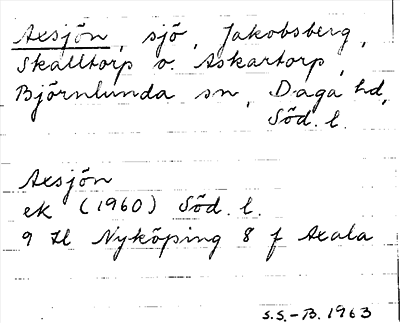 Axsjön, sjö, Jakobsberg,
Skälltorp o. Askartorp,
Björnlunda sn, Daga hd,
Söd. l.
Axsjön
ek (1960) Söd. l.
9 H Nyköping 8 f Axala
S.S.-B. 1963